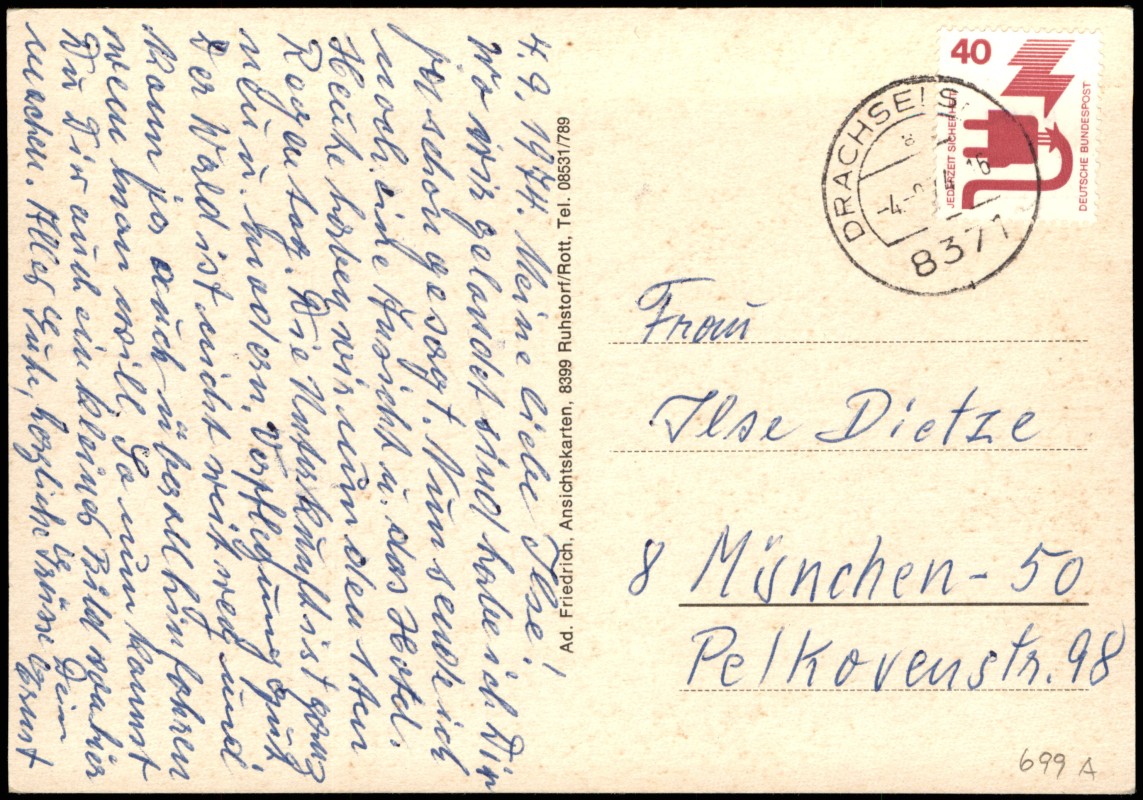 4.9.1974. Meine liebe Ilse!
Wo wir gelandet sind habe ich Dir
ja schon gesagt. Nun sende ich
noch eine Ansicht u. das Hotel.
Heute haben wir nun den 1ten
Regentag. Die Unterkunft ist ganz
neu u. modern, Verpflegung gut
Der Wald ist nicht weit weg und
kann ja auch überall hinfahren
wenn man will. So nun kannst
Du Dir auch ein kleines Bild von hier
machen. Alles Gute, herzliche Grüsse Dein
Ernst
Ad. Friedrich, Ansichtskarten, 8399 Ruhstorf/Rott, Tel. 08531/789
40
JEDERZEIT SICHERHEIT
DEUTSCHE BUNDESPOST
DRACHSELS
-4.-9. 16
8371
Frau
Ilse Dietze
8 München-50
Pelkovenstr. 98
699 A